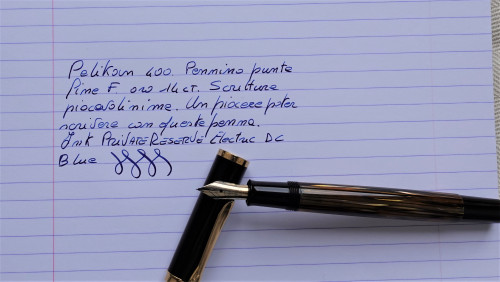 Pelikan 400. Pennino punta
fine F oro 14 ct. Scrittura
piacevolissima. Un piacere poter
scrivere con questa penna.
Ink PRIVATE RESERVE Electric DC
Blue